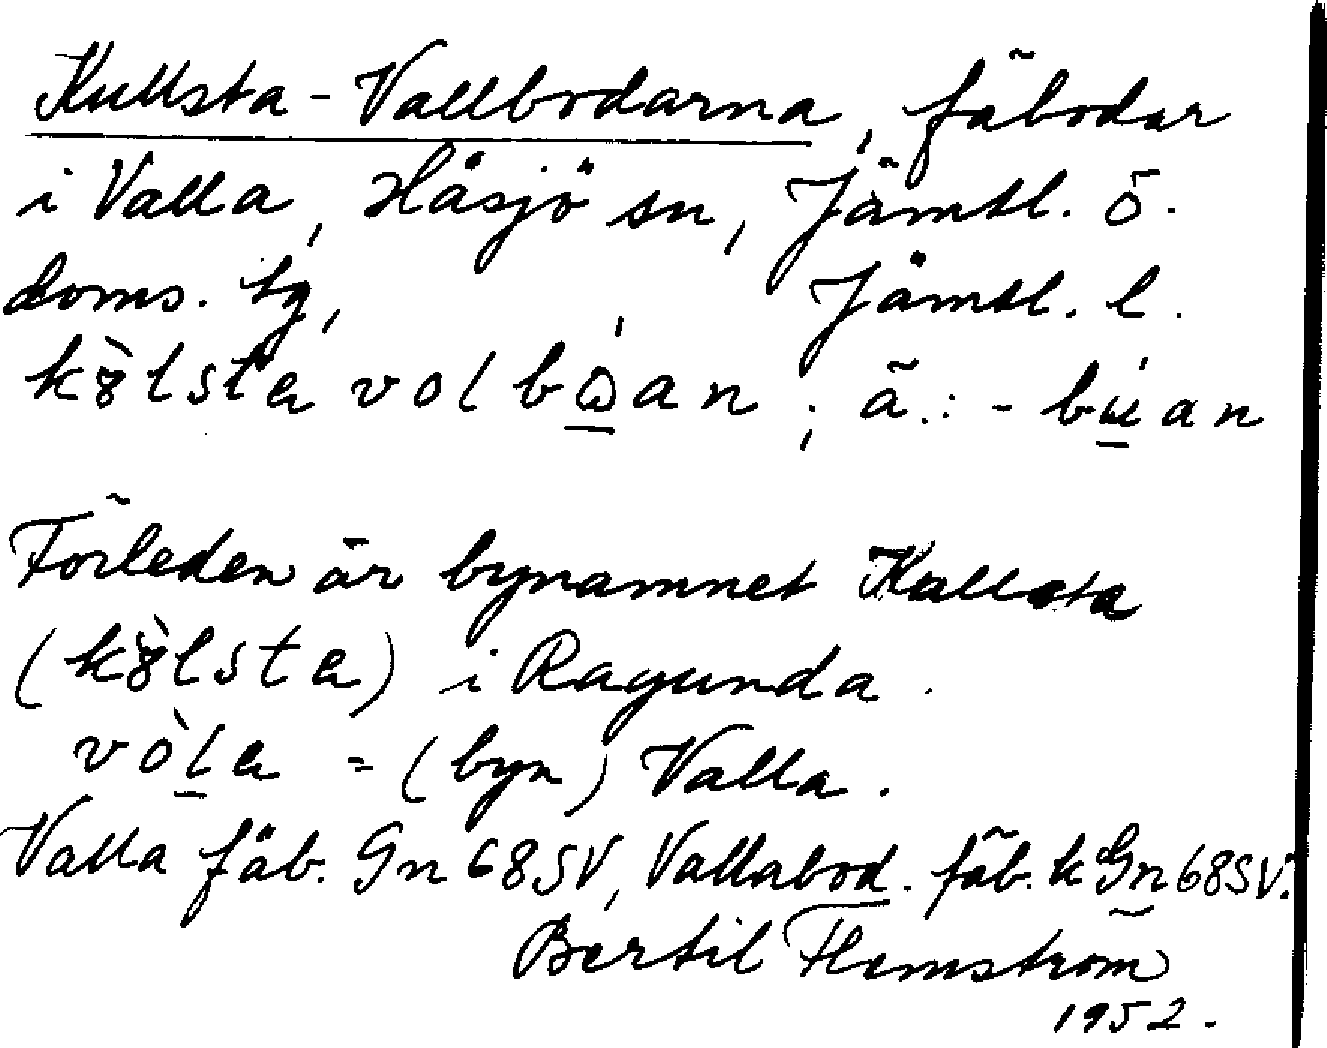 Kullsta-Vallbodarna, fäbodar
i Valla, Håsjö sn, Jämtl. ö.
doms. tg, Jämtl. l.
kȣ̀lsta volbώ̲an; ä.: -bú̲an
Förleden är bynamnet Kullsta
(kȣ̀lsta) i Ragunda.
vòl̲a = (byn) Valla.
Valla fäb. Gn 68SV, Vallabod. fäb. k Gn 68SV.
Bertil Flemström
1952.